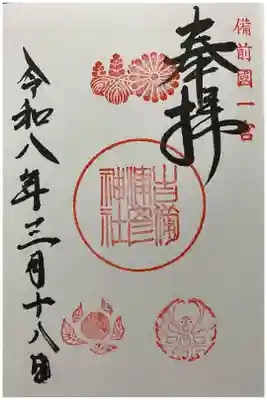 備前國一宮
奉拝
吉備
津彦
神社
令和八年三月十八日